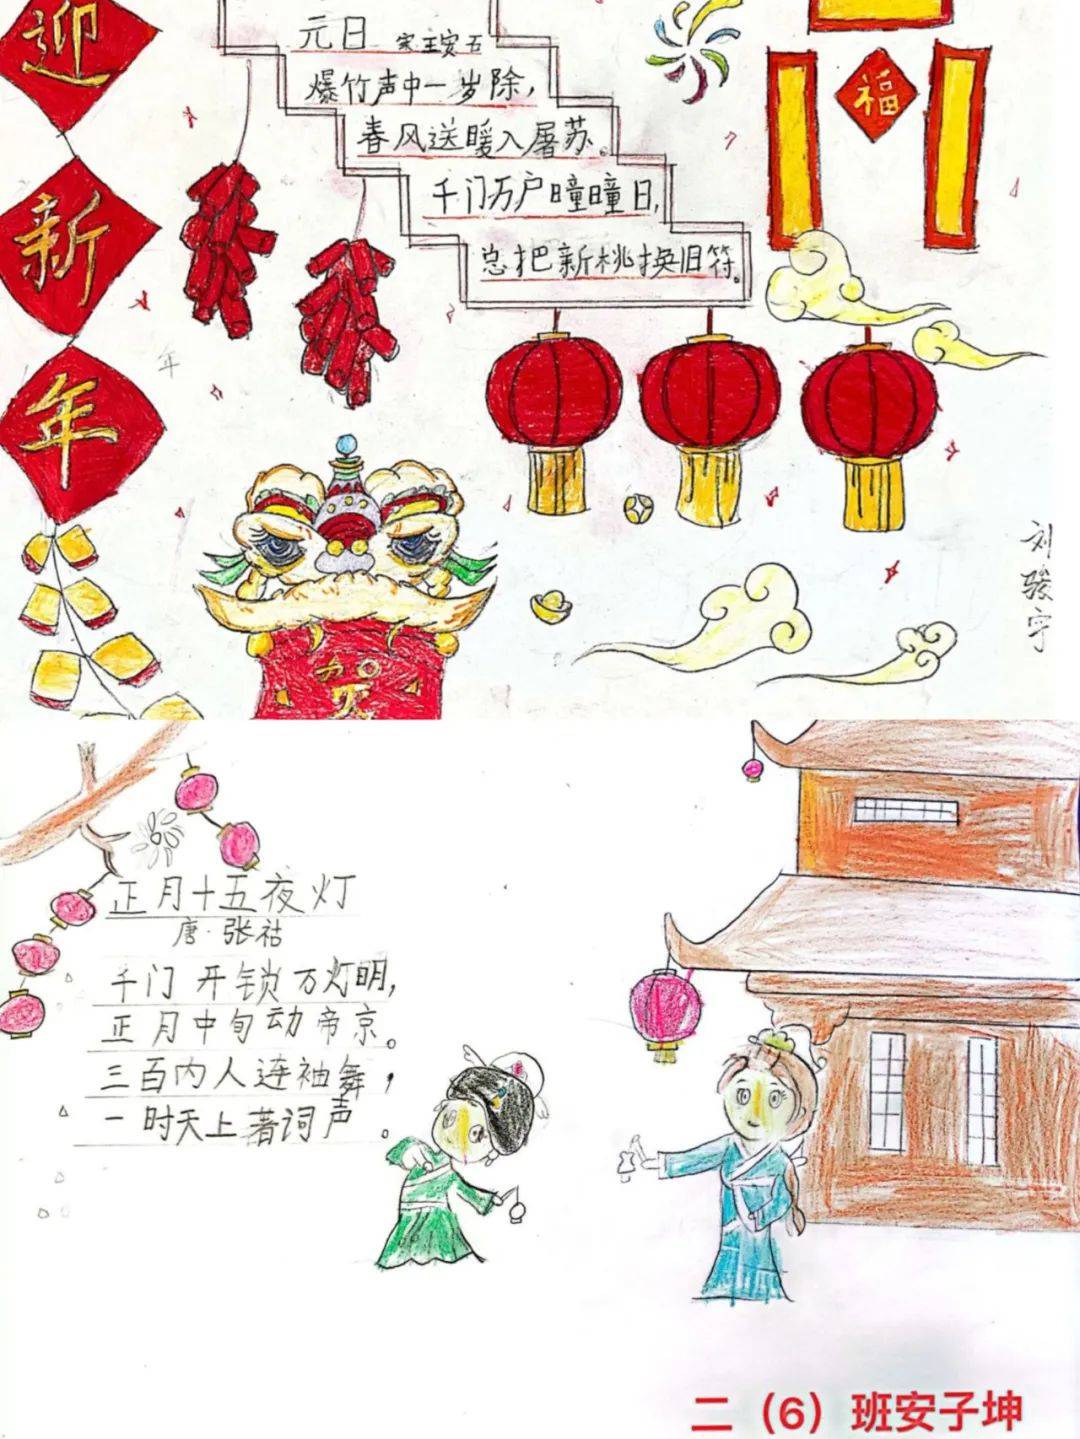 迎
新
年
元日
爆竹声中一岁除，
春风送暖入屠苏。
千门万户曈曈日，
总把新桃换旧符。
福
年
刘骏宇
正月十五夜灯
唐·张祜
千门开锁万灯明，
正月中旬动帝京。
三百内人连袖舞，
一时天上著词声。
二（6）班安子坤